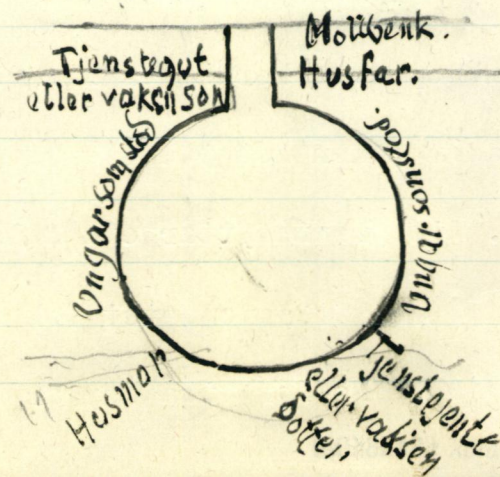 Tjenstegut
eller vaksen son
Mollbenk.
Husfar.
Ungar som stod
Ungar som stod.
Husmor
Tjenstejente
eller vaksen
dotter,